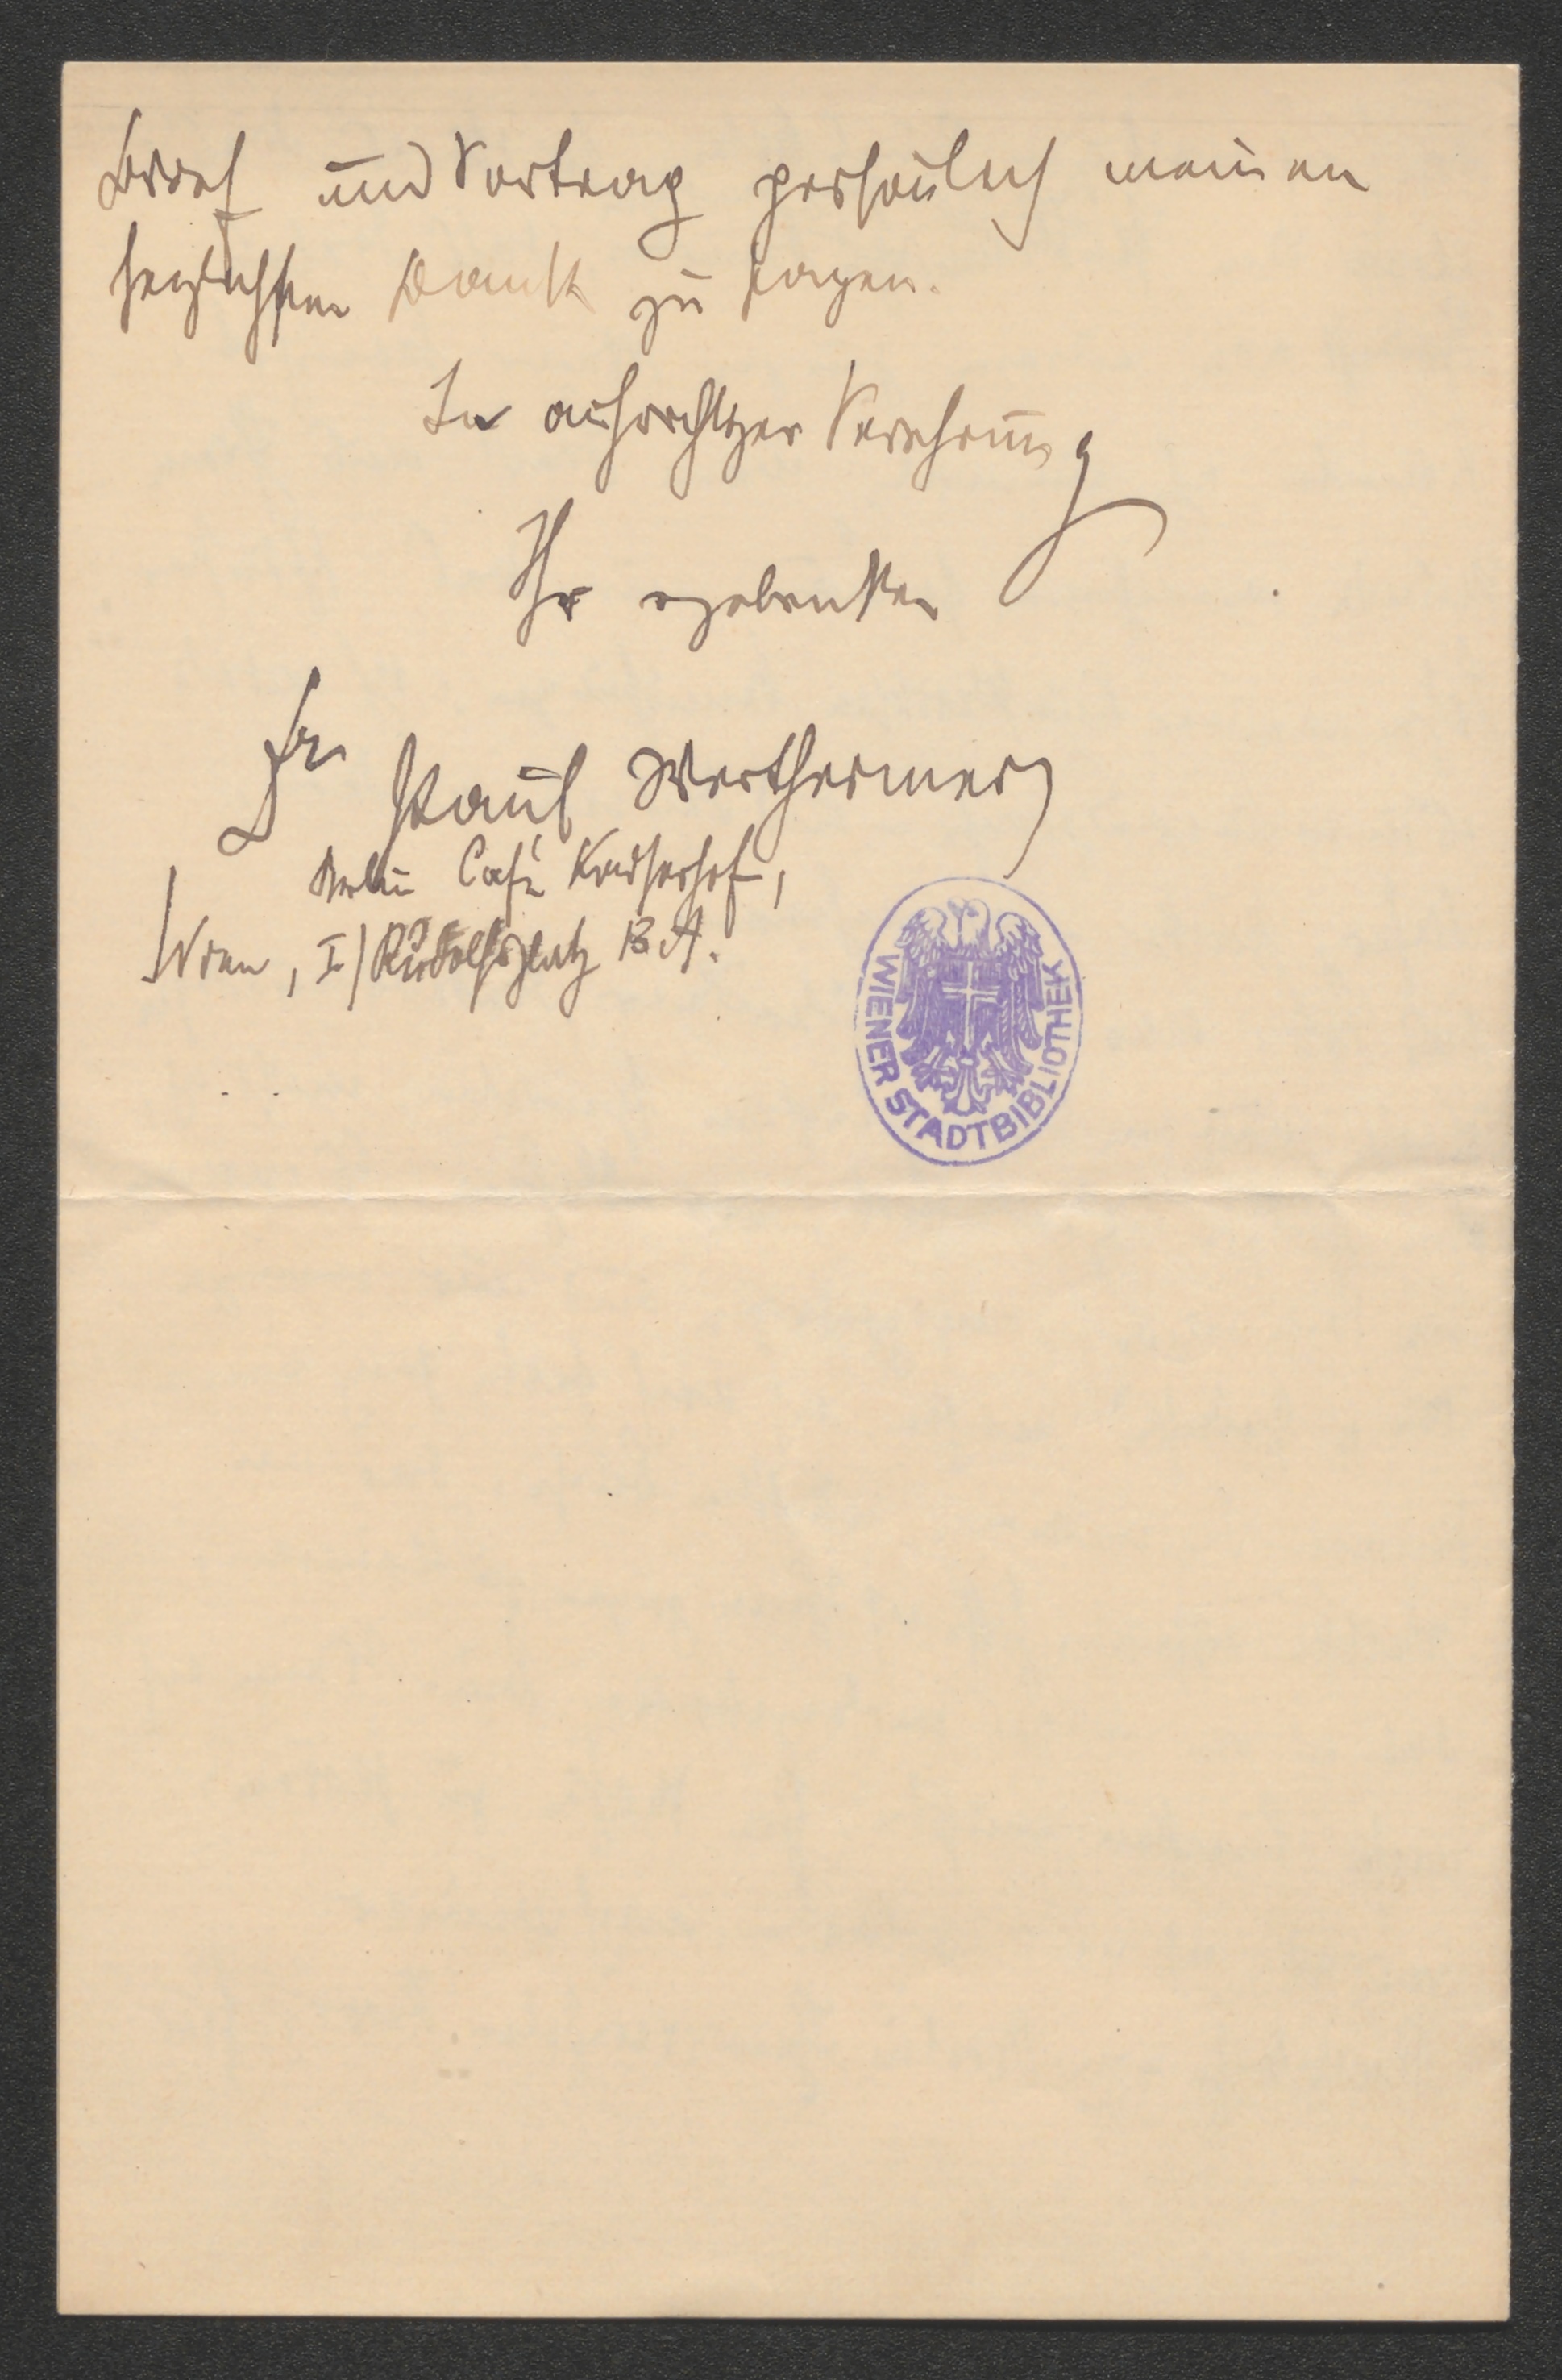 Brief und Vortrag persönlich meinen
herzlichsten Dank zu sagen.
In aufrichtiger Verehrung
Ihr ergebenster
Dr Paul Wertheimer
Café Kaiserhof,
Wien, I) Rudolfsplatz 13 A.
WIENER STADTBIBLIOTHEK